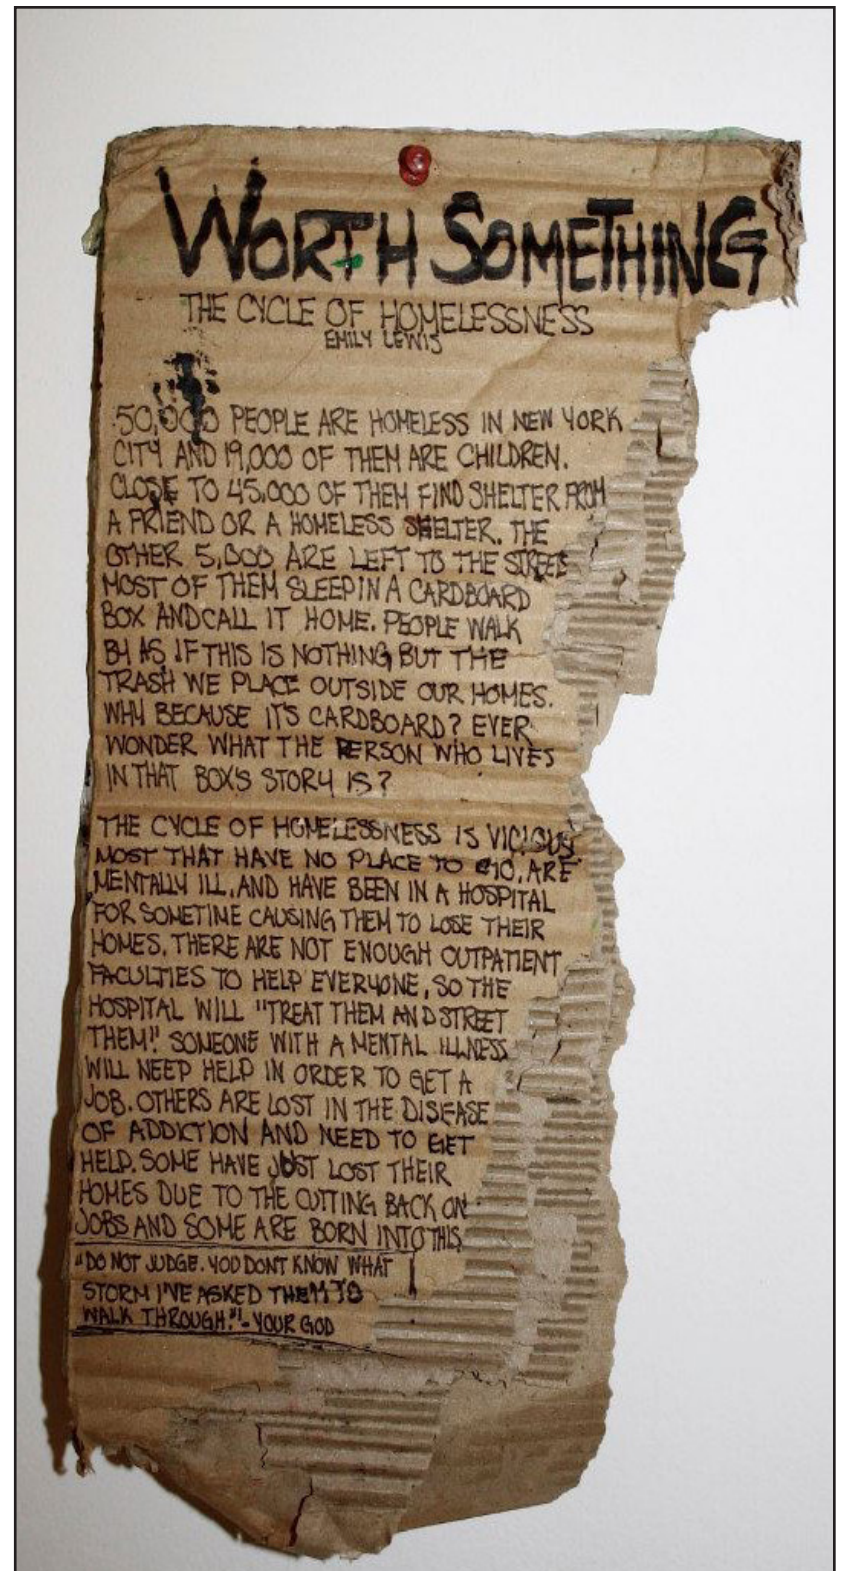 WORTH SOMETHING
THE CYCLE OF HOMELESSNESS
EMILY LEWIS
50,000 PEOPLE ARE HOMELESS IN NEW YORK
CITY AND 19,000 OF THEM ARE CHILDREN.
CLOSE TO 45,000 OF THEM FIND SHELTER FROM
A FRIEND OR A HOMELESS SHELTER. THE
OTHER 5,000 ARE LEFT TO THE STREETS
MOST OF THEM SLEEP IN A CARDBOARD
BOX AND CALL IT HOME. PEOPLE WALK
BY AS IF THIS IS NOTHING BUT THE
TRASH WE PLACE OUTSIDE OUR HOMES.
WHY BECAUSE IT'S CARDBOARD? EVER
WONDER WHAT THE PERSON WHO LIVES
IN THAT BOX'S STORY IS?
THE CYCLE OF HOMELESSNESS IS VICIOUS
MOST THAT HAVE NO PLACE TO GO, ARE
MENTALLY ILL, AND HAVE BEEN IN A HOSPITAL
FOR SOMETIME CAUSING THEM TO LOSE THEIR
HOMES. THERE ARE NOT ENOUGH OUTPATIENT
FACULTIES TO HELP EVERYONE, SO THE
HOSPITAL WILL "TREAT THEM AND STREET
THEM!" SOMEONE WITH A MENTAL ILLNESS
WILL NEED HELP IN ORDER TO GET A
JOB. OTHERS ARE LOST IN THE DISEASE
OF ADDICTION AND NEED TO GET
HELP. SOME HAVE JUST LOST THEIR
HOMES DUE TO THE CUTTING BACK ON
JOBS AND SOME ARE BORN INTO THIS.
"DO NOT JUDGE. YOU DONT KNOW WHAT
STORM I'VE ASKED THEM TO
WALK THROUGH." - YOUR GOD